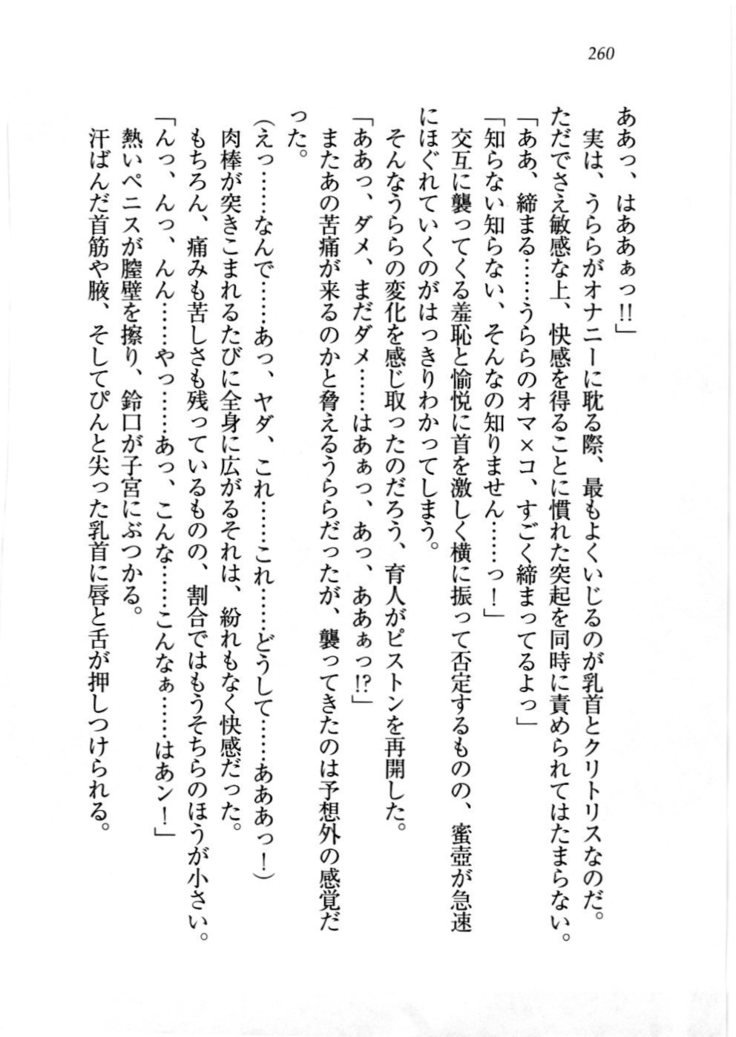 260
ああっ、はああぁっ!!」
実は、うららがオナニーに耽る際、最もよくいじるのが乳首とクリトリスなのだ。
ただでさえ敏感な上、快感を得ることに慣れた突起を同時に責められてはたまらない。
「ああ、締まる……うららのオマ×コ、すごく締まってるよっ」
「知らない知らない、そんなの知りません……っ！」
交互に襲ってくる羞恥と愉悦に首を激しく横に振って否定するものの、蜜壺が急速
にほぐれていくのがはっきりわかってしまう。
そんなうららの変化を感じ取ったのだろう、育人がピストンを再開した。
「ああっ、ダメ、まだダメ……はあぁっ、あっ、ああぁっ!?」
またあの苦痛が来るのかと脅えるうららだったが、襲ってきたのは予想外の感覚だ
った。
（えっ……なんで……あっ、ヤダ、これ……これ……どうして……あああっ！）
肉棒が突きこまれるたびに全身に広がるそれは、紛れもなく快感だった。
もちろん、痛みも苦しさも残っているものの、割合ではもうそちらのほうが小さい。
「んっ、んっ、んん……やっ……あっ、こんな……こんなぁ……はあン！」
熱いペニスが膣壁を擦り、鈴口が子宮にぶつかる。
汗ばんだ首筋や腋、そしてぴんと尖った乳首に唇と舌が押しつけられる。